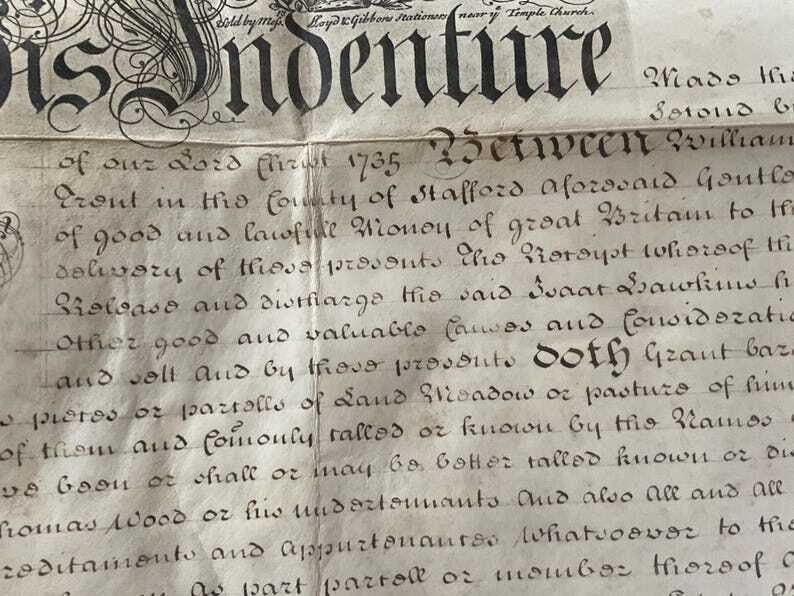 Sold by Mess. Lloyd & Gibbons Stationers near ye Temple Church.
his Indenture Made th
Second
of our Lord Christ 1735 Between William
Trent in the County of Stafford aforesaid Gentle
of good and lawfull Money of great Britain to th
delivery of these presents The Receipt whereof th
Release and discharge the said Isaac Hawkins h
other good and valuable Causes and Considerati
and sell And by these presents doth Grant bar
s pieces or parcells of Land Meadow or pasture of him
of them and Comonly called or known by the Names
ve been or shall or may be better called known or di
homas Wood or his undertennants And also All and All
reditaments and Appurtenances whatsoever to the
As part parcell or member thereof